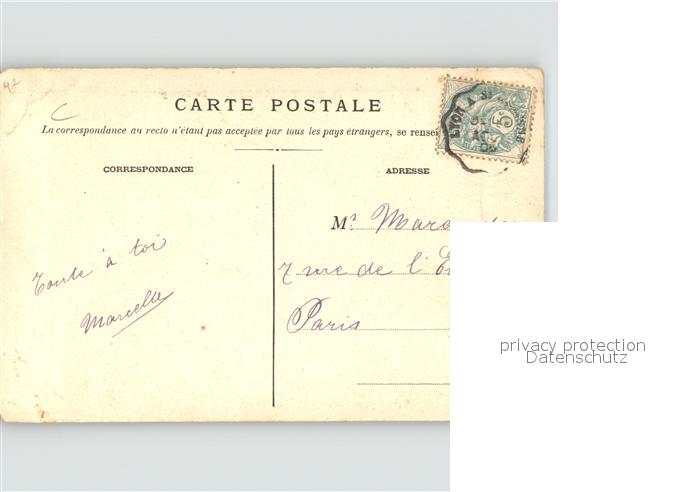 CARTE POSTALE
La correspondance au recto n'étant pas acceptée par tous les pays étrangers, se rensei
CORRESPONDANCE
ADRESSE
LYON A ST
5
Mr
7 rue de l'E
Paris
Toute à toi
Marcelle
privacy protection
Datenschutz